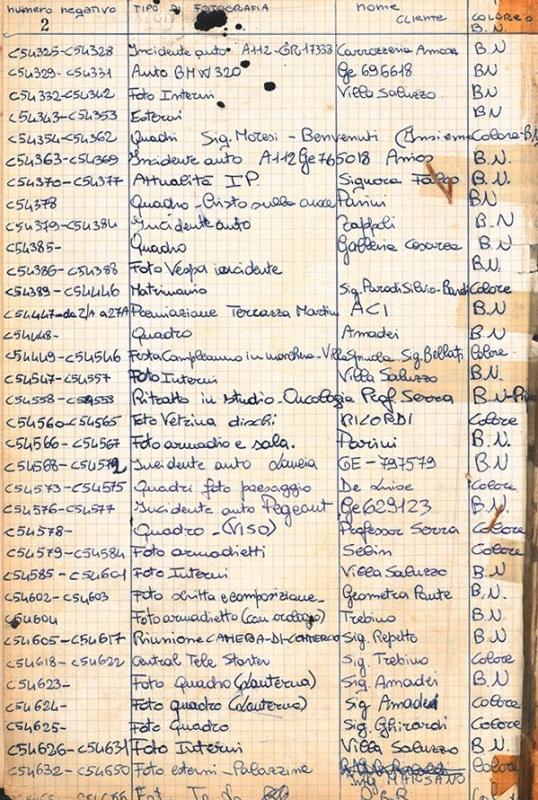 numero negativo TIPO DI FOTOGRAFIA nome CLIENTE COLORE O B.N.
2
C54325-C54328 Incidente auto A112-GR17333 Carrozzeria Amos B.N
C54329-C54331 Auto BMW 320 Ge 696618 B.N
C54332-C54342 Foto Interni Villa Saluzzo B.N
C54343-C54353 Esterni BN
C54354-C54362 Quadri Sig. Moresi - Benvenuti Colore-B.N
C54363-C54369 Incidente auto A112 Ge 765018 Amos B.N.
C54370-C54377 Attualità I.P. Signora B.N.
C54378 Quadro - Cristo sulla croce Parini B.N
C54379-C54384 Incidente auto B.N
C54385- Quadro Galleria B.N
C54386-C54388 Foto Vespa incidente B.N.
C54389-C54446 Matrimonio Sig. Parodi Silvio- Colore
C54447-da 2/A a 27A Premiazione Terrazza Martini ACI B.N
C54448- Quadro Amadei B.N
C54449-C54546 Festa Compleanno in maschera - Villa Spinola Sig. Bellati Colore
C54547-C54557 Foto Interni Villa Saluzzo B.N.
C54558- Ritratto in studio - Oncologia Prof. Serra B.N-
C54560-C54565 Foto Vetrina dischi RICORDI Colore
C54566-C54567 Foto armadio e sala. Parini B.N.
C54568-C54572 Incidente auto Lancia GE-797579 B.N
C54573-C54575 Quadri foto paesaggio De Luise Colore
C54576-C54577 Incidente auto Pegeant Ge 629123 B.N.
C54578- Quadro - (VISO) Professor Serra Colore
C54579-C54584 Foto armadietti Selin Colore
C54585-C54601 Foto Interni Villa Saluzzo B.N
C54602-C54603 Foto scritta e composizione- Geometra B.N.
C54604 Foto armadietto (con orologio) Trebino B.N.
C54605-C54617 Riunione CAMERA-DI-COMMERCIO Sig. Repetto B.N
C54618-C54622 Central Tele Starter Sig. Trebino Colore
C54623- Foto Quadro (Lanterna) Sig. Amadei B.N
C54624- Foto quadro (Lanterna) Sig Amadei Colore
C54625- Foto Quadro Sig. Ghirardi Colore
C54626-C54631 Foto Interni Villa Saluzzo B.N.
C54632-C54650 Foto esterni - Palazzine Colore
Ing MARSANO